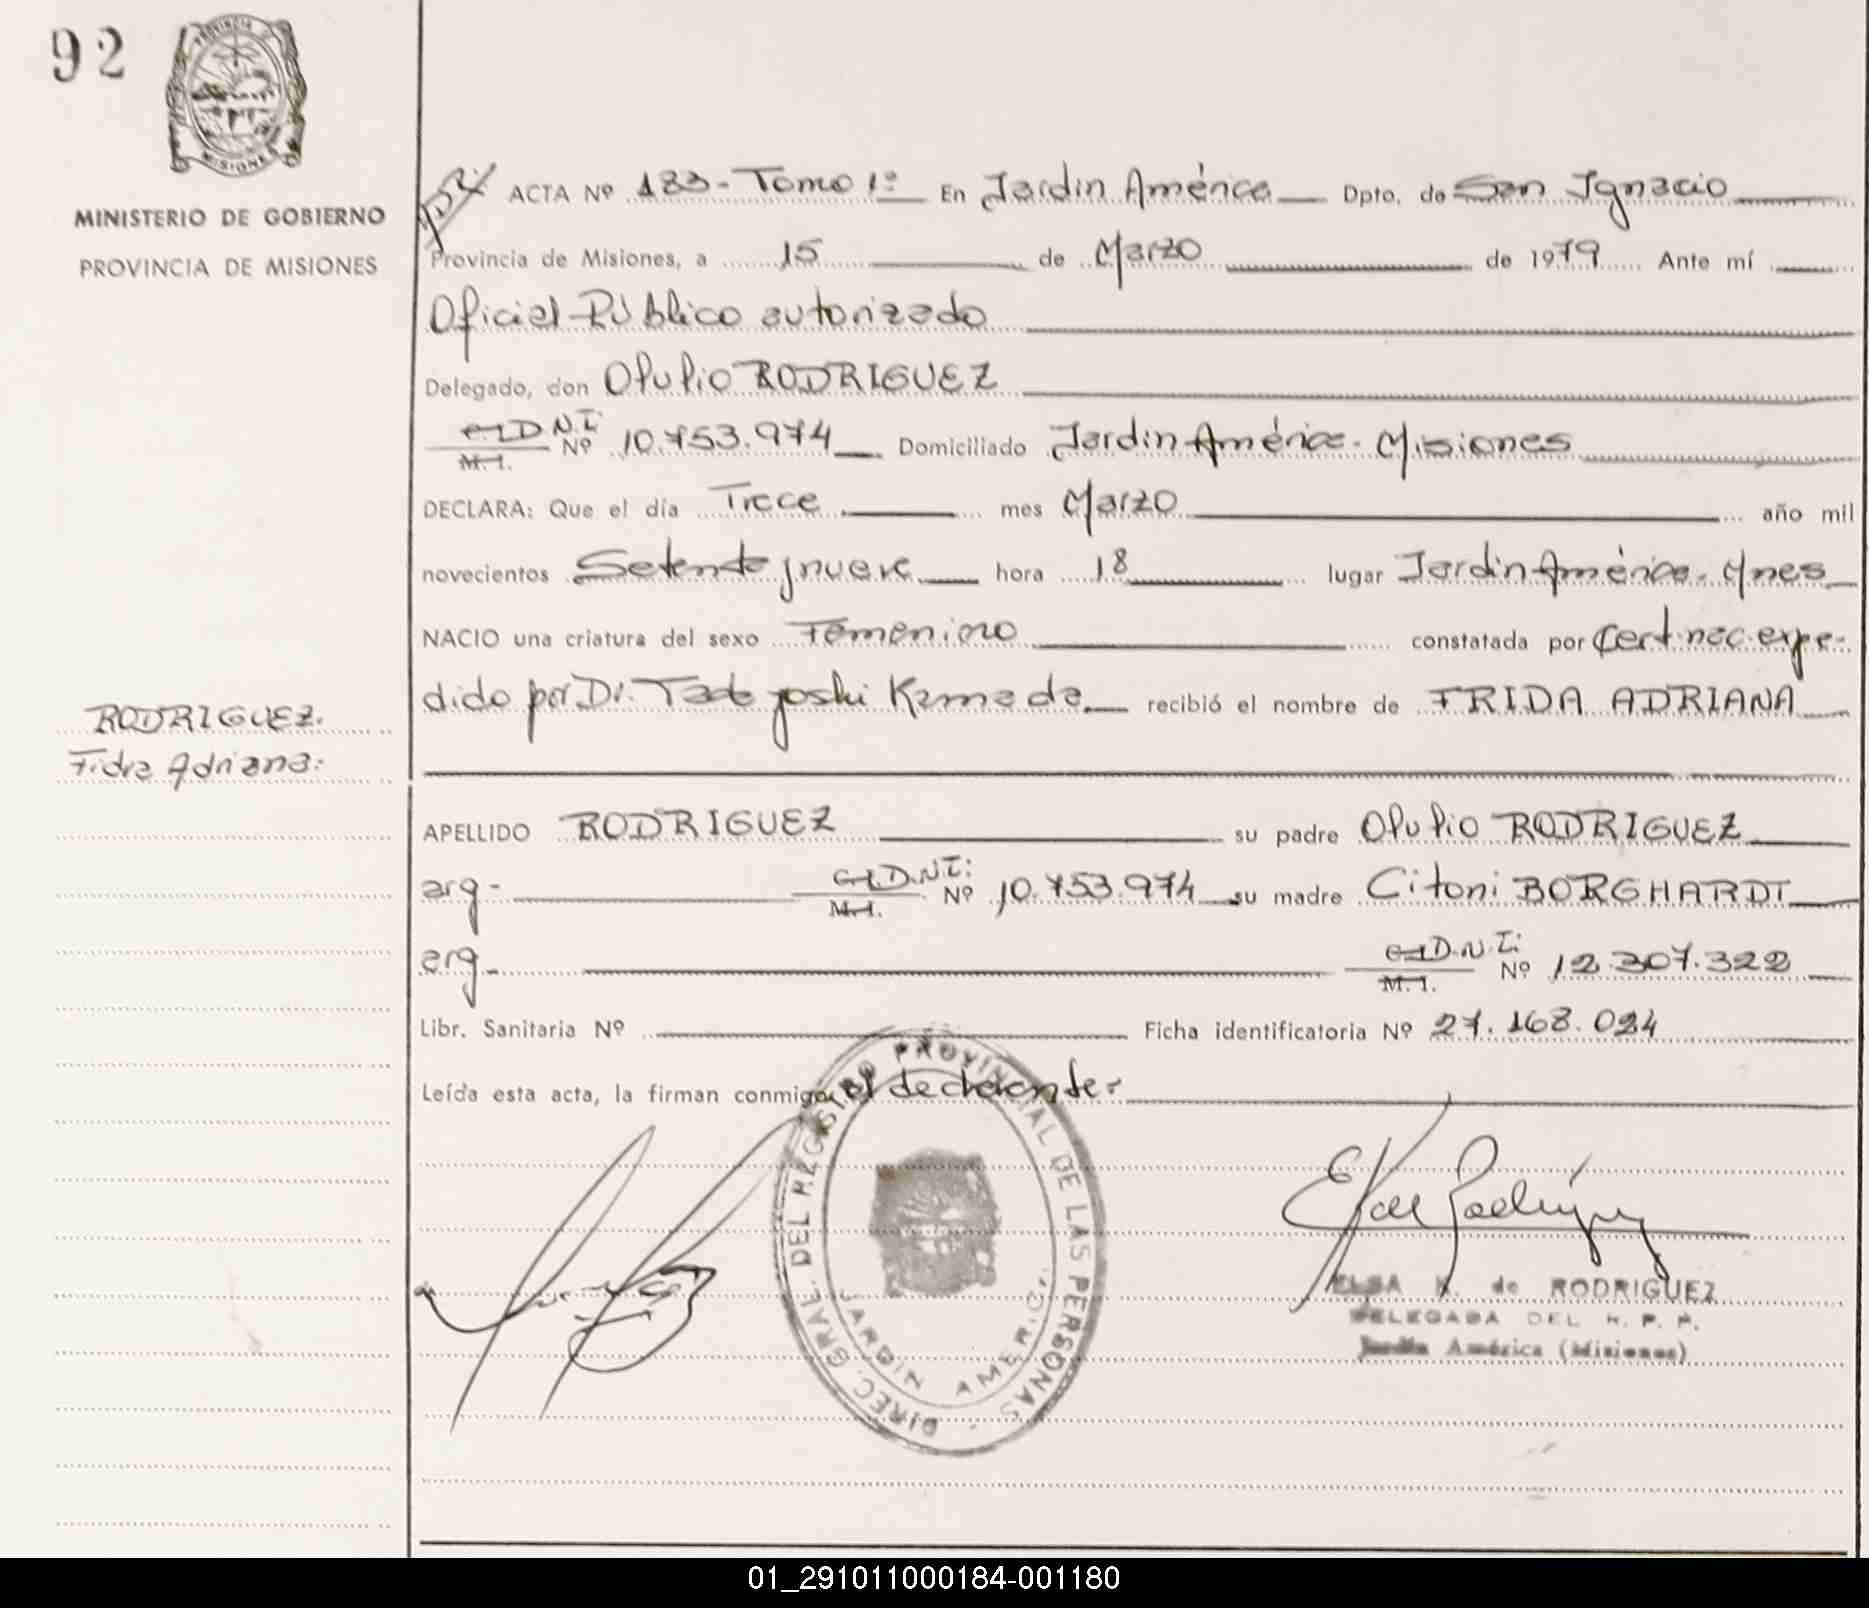 92
PROVINCIA
MISIONES
MINISTERIO DE GOBIERNO
PROVINCIA DE MISIONES
ACTA Nº 183-Tomo 1º En Jardin América Dpto. de San Ignacio
Provincia de Misiones, a 15 de Marzo de 1979 Ante mí
Oficial Público autorizado
Delegado, don Olulio RODRIGUEZ
C.I. D.N.I.
M.I. Nº 10.753.974 Domiciliado Jardin América. Misiones
DECLARA: Que el día Trece mes Marzo año mil
novecientos Setenta y nueve hora 18 lugar Jardin América. Mnes
NACIO una criatura del sexo Femenino constatada por Cert. nac. expe-
dido por Dr. Tadayoshi Kamada recibió el nombre de FRIDA ADRIANA
RODRIGUEZ.
Fidra Adriana.
APELLIDO RODRIGUEZ su padre Olulio RODRIGUEZ
arg- C.I. D.N.I. M.I. Nº 10.753.974 su madre Citoni BORGHARDT
arg- C.I. D.N.I. M.I. Nº 12.307.322
Libr. Sanitaria Nº Ficha identificatoria Nº 27.168.024
Leída esta acta, la firman conmigo, el declarante.
DIREC. GRAL. DEL REGISTRO PROVINCIAL DE LAS PERSONAS
JARDIN AMERICA
ELSA K. de RODRIGUEZ
DELEGADA DEL R. P. P.
Jardín América (Misiones)
01_291011000184-001180